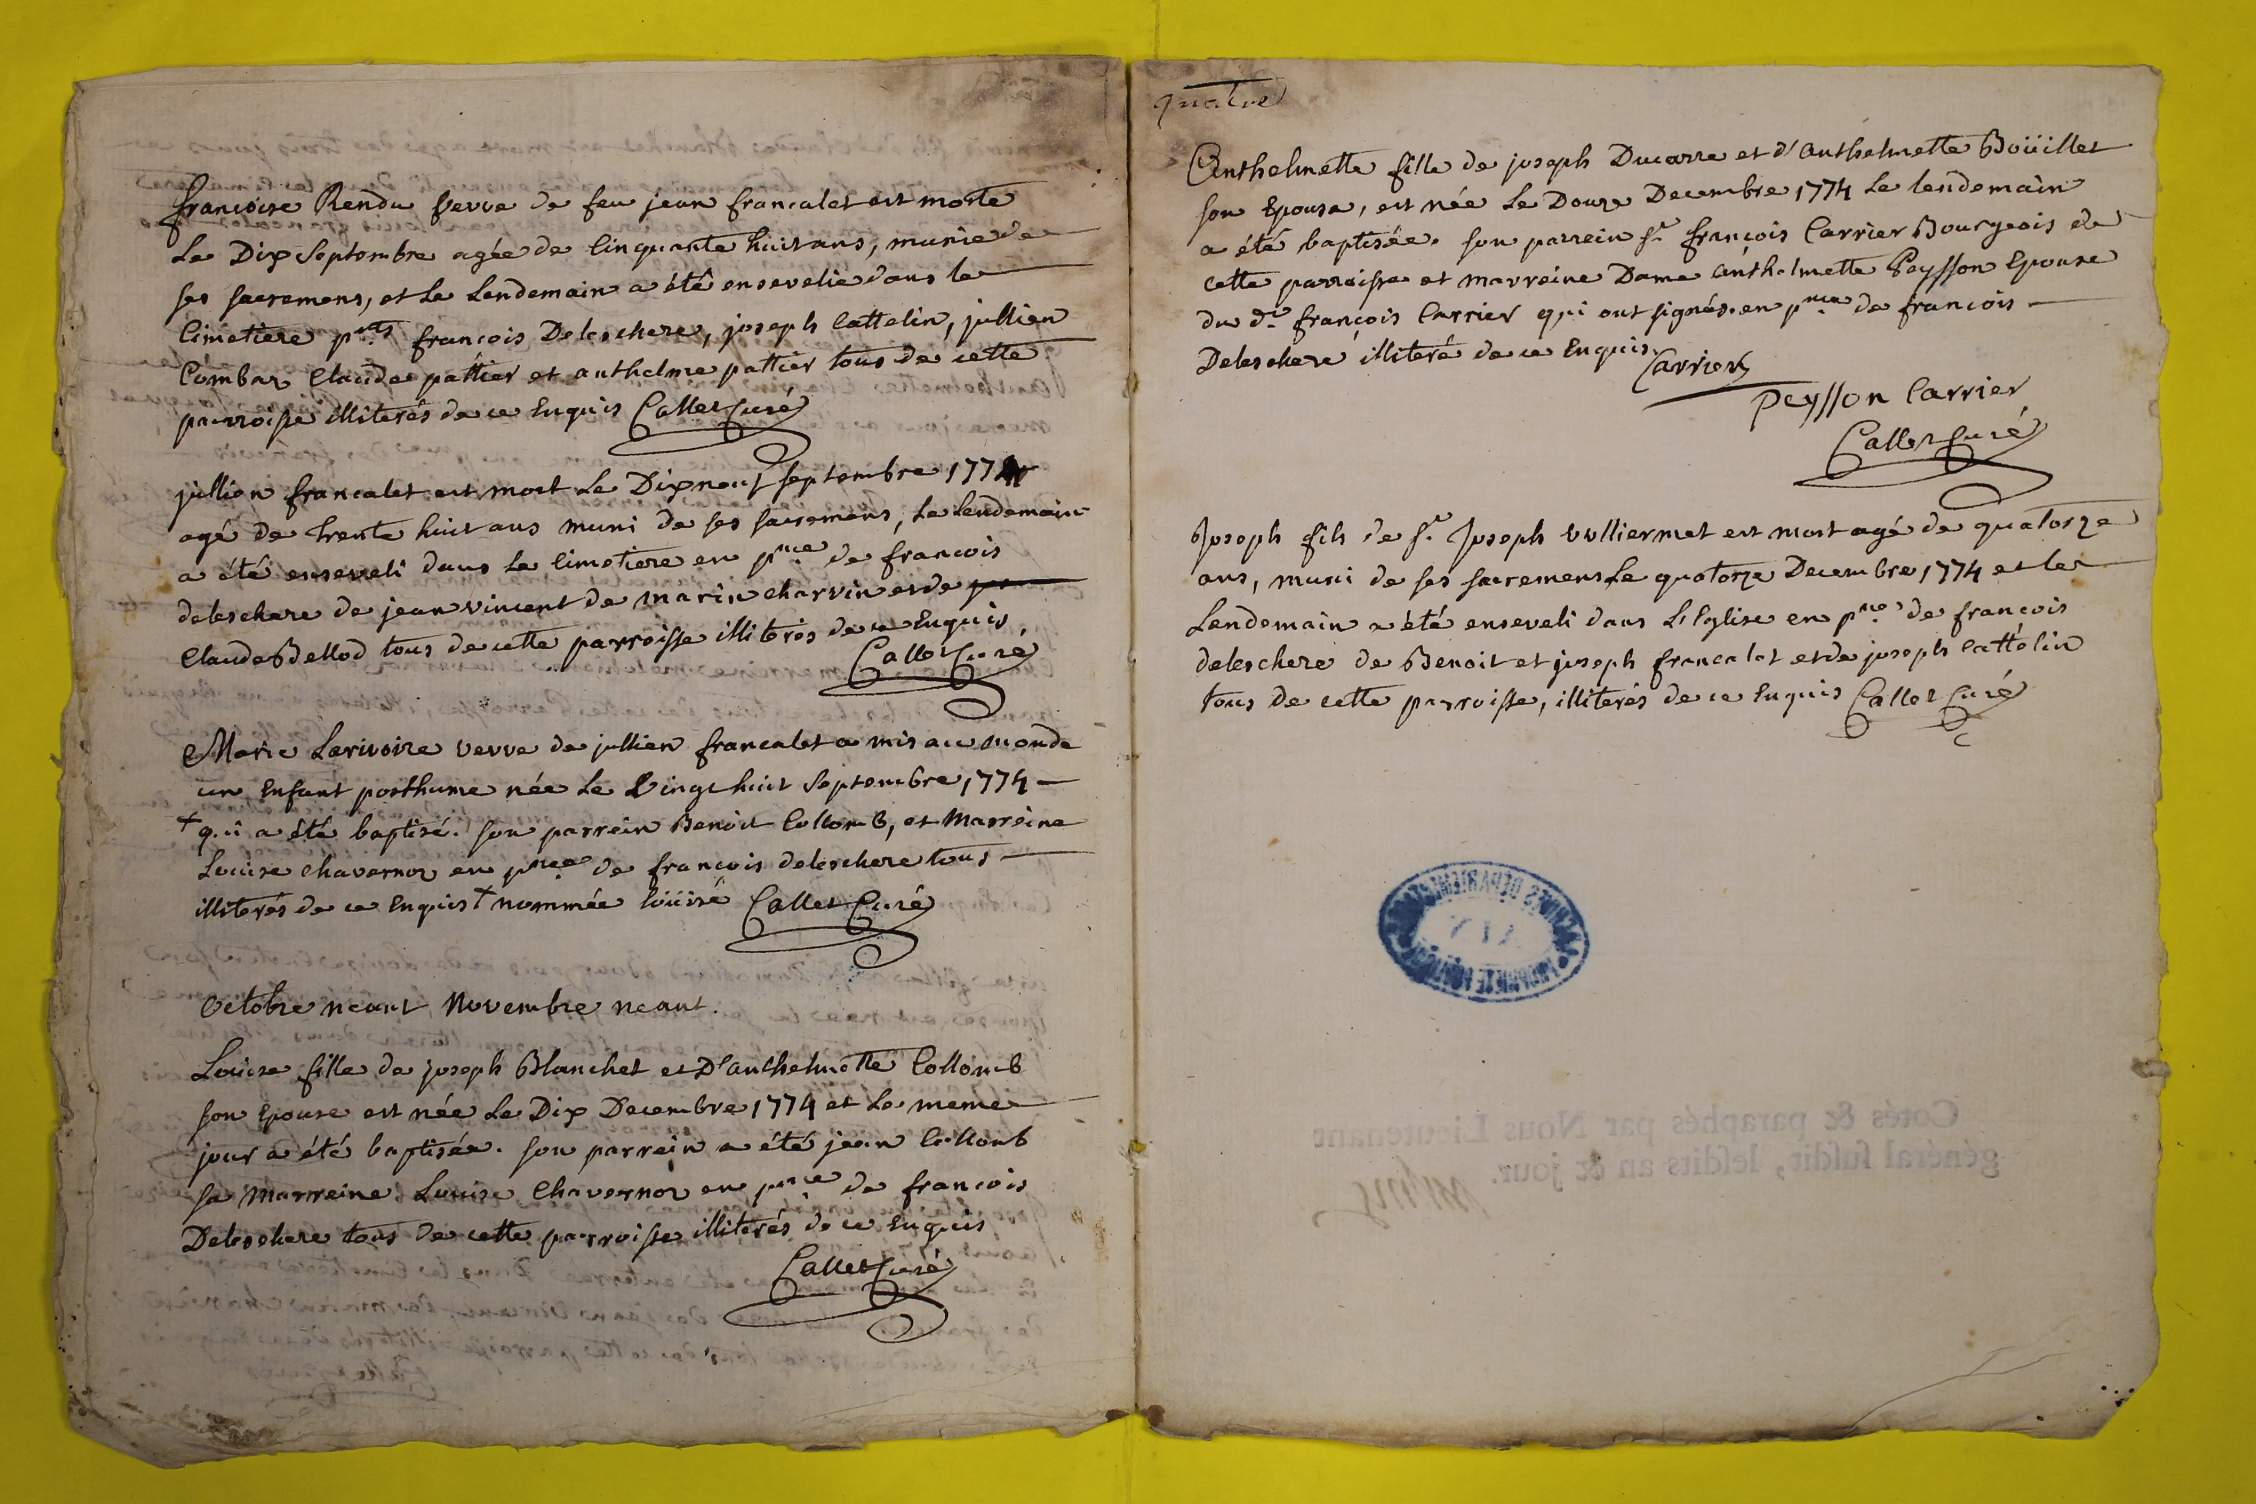 françoise Rendu vevve de feu jean francalet est morte
Le Dix Septembre agée de Cinquante huit ans, munie de
ses sacremens, et Le Lendemain a été ensevelie dans le
Cimetiere pnts françois Deleschere, joseph Cattelin, jullien
Combaz Claude pattier et anthelme pattier tous de cette
parroisse illiterés de ce Enquis Callet Curé
jullien francalet est mort Le Dixneuf septembre 1774
agé de trente huit ans muni de ses sacremens, Le Lendemain
a été enseveli dans Le Cimetiere en pnce de francois
deleschere de jean vincent de marin charvin et de
Claude Bellod tous de cette parroisse illiterés de ce Enquis
Callet Curé
Marie Larivoire vevve de jullien francalet a mis au monde
un Enfant posthume née Le Vingt huit Septembre 1774
+ qui a été baptisé. son parrein Benoit Collomb, et Marreine
Louise Chavernoz en pnce de françois deleschere tous
illiterés de ce Enquis + nommée Loüise Callet Curé
Octobre neant Novembre neant.
Loüise fille de joseph Blanchet et D'anthelmette Collomb
son Epouse est née Le Dix Decembre 1774 et Le meme
jour a été baptisée. son parrein a été jean Collomb
sa Marreine Louise Chavernoz en pnce de francois
Deleschere tous de cette parroisse illiterés de ce Enquis
Callet Curé
quatre
Anthelmette fille de joseph Ducarre et d'Anthelmette Boüillet
son Epouse, est née Le Douze Decembre 1774 Le lendemain
a été baptisée. son parrein sr françois Carrier Bourgeois de
cette parroisse et marreine Dame Anthelmette Peysson Epouse
du dt françois Carrier qui ont signés. en pnce de francois
Deleschere illiteré de ce Enquis.
Carrier
Peysson Carrier
Callet Curé
Joseph fils de sr Joseph Vulliermet est mort agé de quatorze
ans, muni de ses sacremens Le quatorze Decembre 1774 et le
Lendemain a été enseveli dans L'Eglise en pnce de francois
deleschere de Benoit et joseph francalet et de joseph Cattelin
tous de cette parroisse, illiterés de ce Enquis Callet Curé
Cotés & paraphés par Nous Lieutenant
général susdit, lesdits an & jour.